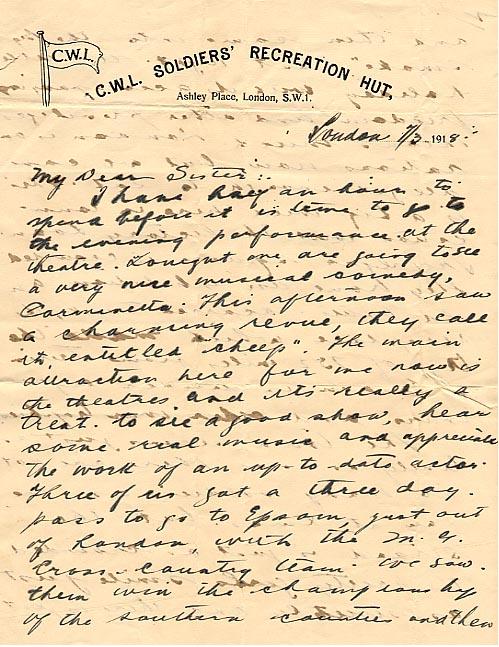 C.W.L.
C.W.L. SOLDIERS' RECREATION HUT,
Ashley Place, London, S.W.1.
London 7/3 1918
My Dear Sister:.
I have half an hour to
spend before it is time to go to
the evening performance at the
theatre. Tonight we are going to see
a very nice musical comedy,
Carminetta. This afternoon saw
a charming revue, they call
it, entitled "Cheep". The main
attraction here for me now is
the theatres and its really a
treat to see a good show, hear
some real music and appreciate
the work of an up-to date actor.
Three of us got a three day
pass to go to Epsom, just out
of London, with the
Cross-Country team. We saw
them win the championship
of the southern counties and then